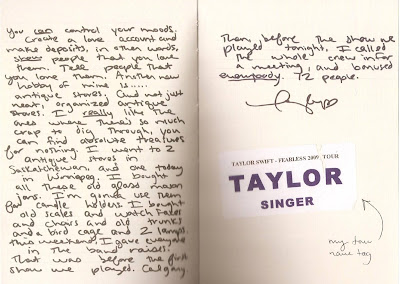 You can control your moods.
Create a love account and
make deposits, in other words,
show people that you love
them. Tell people that
you love them. Another new
hobby of mine is.....
antique stores. And not just
neat, organized antique
stores. I really like the
ones where there's so much
crap to dig through, you
can find absolute treasures
for nothing! I went to 2
antique stores in
Saskatchewan, and one today
in Winnipeg. I bought
all these old glass mason
jars. I'm gonna use them
for candle holders. I bought
old scales and watch faces
and chairs and old trunks
and a bird cage and 2 lamps.
this weekend, I gave everyone
in the band raises.
That was before the first
show we played. Calgary
Then, before the show we
played tonight, I called
the whole crew in for
a meeting, and bonused
everybody. 72 people.
TAYLOR SWIFT - FEARLESS 2009 TOUR
TAYLOR
SINGER
my tour
name tag